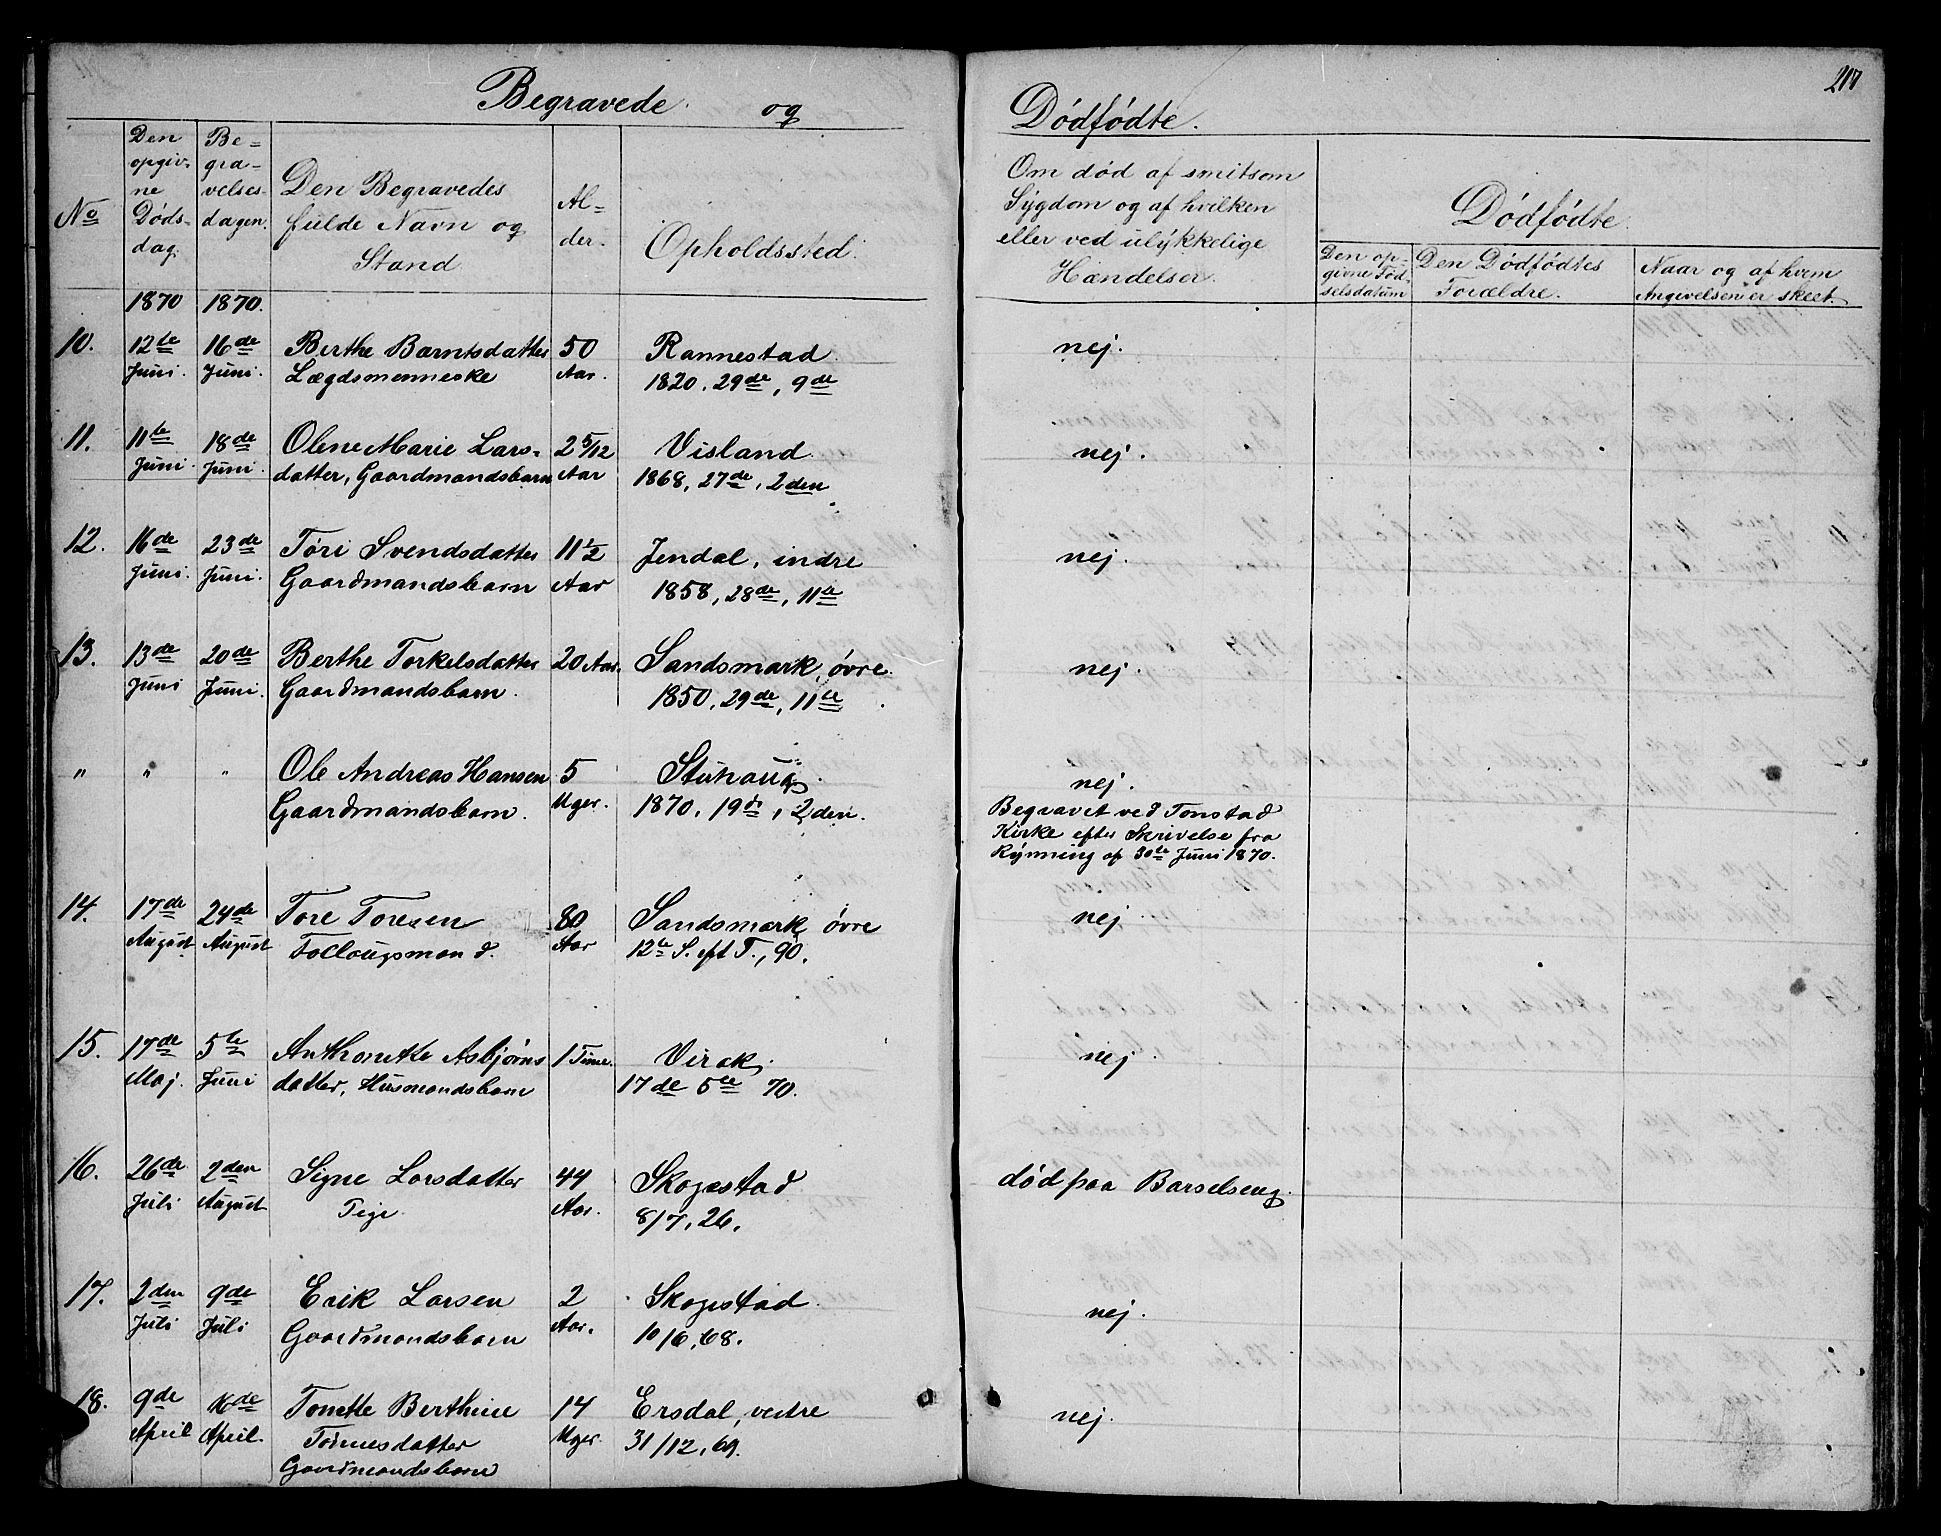 217
Begravede og Dödfödte.
No
Den opgiv-
ne
Döds-
dag.
Be-
gra-
velses-
dagen.
Den Begravedes
fulde Navn og
Stand
Al-
der.
Opholdssted.
Om död af smitsom
Sygdom og af hvilken
eller ved ulykkelige
Hændelser.
Dödfödte.
Den op-
givne Föd-
selsdatum
Den Dödfödtes
Forældre.
Naar og af hvem
Angivelsen er skeet.
1870 1870.
10. 12te 16de Berthe Barntsdatter 50 Rannestad nej.
Juni. Juni. Lægdsmenneske Aar. 1820, 29de, 9de
11. 11te 18de Olene Marie Lars- 2 5/12 Visland nej.
Juni. Juni. datter, Gaardmandsbarn Aar 1868, 27de, 2den
12. 16de 23de Töri Svendsdatter 11 1/2 Jendal, indre nej.
Juni. Juni. Gaardmandsbarn Aar 1858, 28de, 11te
13. 13de 20de Berthe Torkelsdatter 20 Aar. Sandsmark, övre nej.
Juni Juni. Gaardmandsbarn. 1850, 29de, 11te
" " " Ole Andreas Hansen 5 Stuhaug nej.
Gaardmandsbarn. Uger. 1870, 19de, 2den.
Begravet ved Tonstad
Kirke efter Skrivelse fra
Rynning af 30te Juni 1870.
14. 17de 24de Tore Toresen 80 Sandsmark övre nej
August August Follaugsmand. Aar 12te S. eft T., 90.
15. 17de 5te Anthonette Asbjörns 1 Time. Virak nej
Maj. Juni datter, Husmandsbarn 17de 5te 70.
16. 26de 2den Signe Larsdatter 44 Skogestad död paa Barselseng.
Juli August Pige. Aar. 8/7, 26.
17. 2den 9de Erik Larsen 2 Skogestad nej.
Juli Juli Gaardmandsbarn Aar. 10/6, 68.
18. 9de 16de Tonette Berthine 14 Ersdal, vestre nej.
April April. Tönnesdatter Uger. 31/12, 69.
Gaardmandsbarn